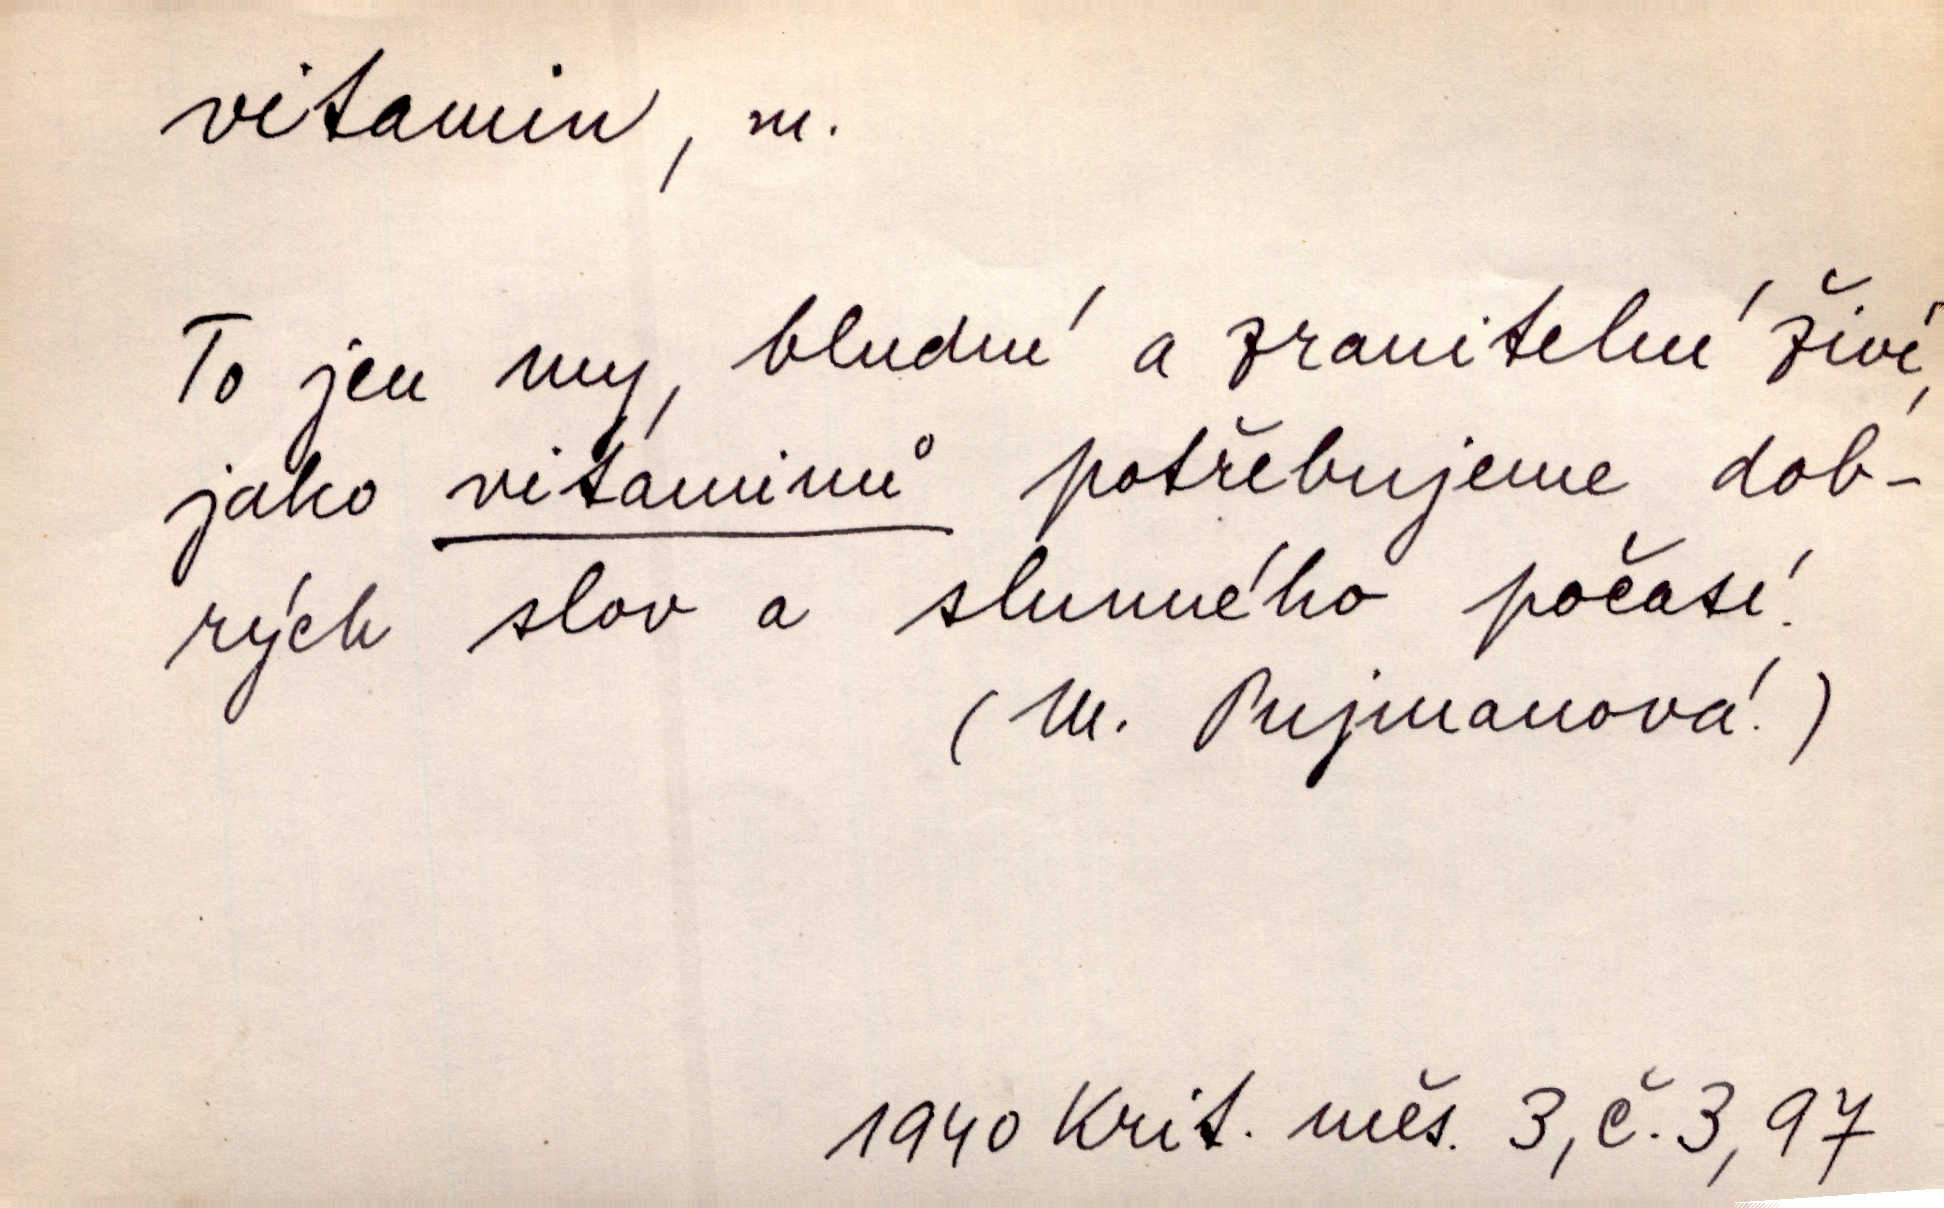 vitamin, m.
To jen my, bludní a zranitelní živí,
jako vitaminů potřebujeme dob-
rých slov a slunného počasí.
(M. Pujmanová.)
1940 Krit. měs. 3, č. 3, 97